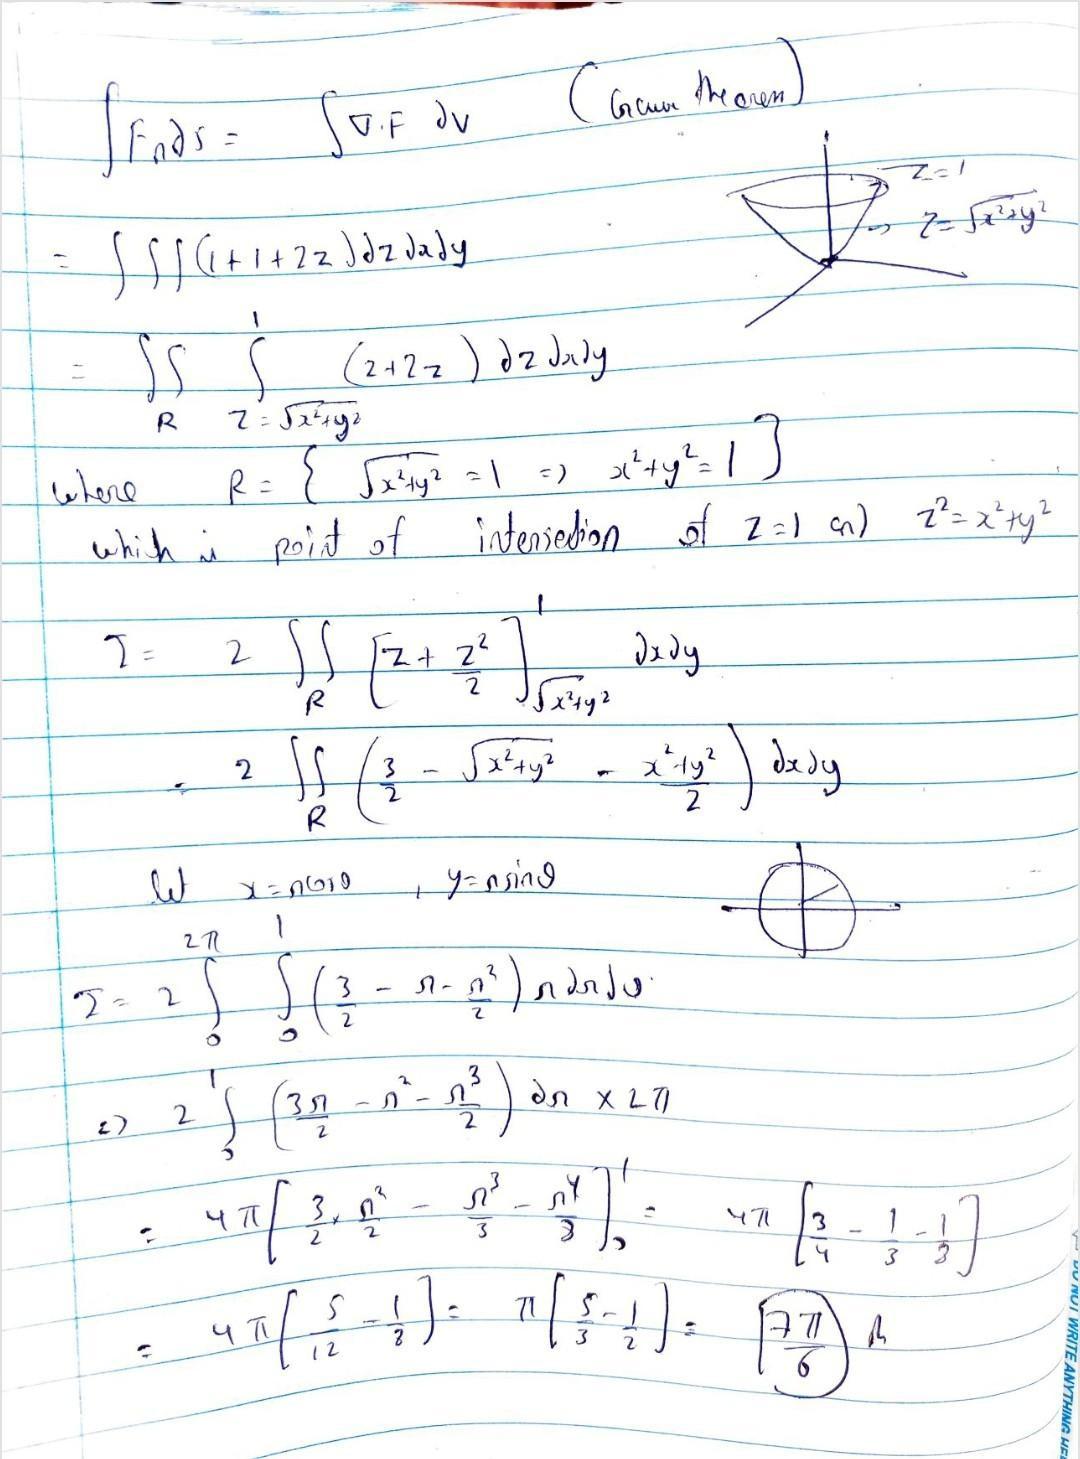 ∫ F_n ds = ∫ ∇.F dv (Gauss theorem)
z=1
z=√x²+y²
= ∫∫∫(1+1+2z)dz dx dy
= ∫∫_R ∫_{z=√x²+y²}^1 (2+2z) dz dx dy
where R = { √x²+y² = 1 => x²+y² = 1 }
which is point of intersection of z=1 and z²=x²+y²
I = 2 ∫∫_R [z + z²/2]_{√x²+y²}^1 dx dy
= 2 ∫∫_R (3/2 - √x²+y² - x²+y²/2) dx dy
let x=rcosθ , y=rsinθ
I = 2 ∫_0^{2π} ∫_0^1 (3/2 - r - r²/2) r dr dθ.
=> 2 ∫_0^1 (3r/2 - r² - r³/2) dr × 2π
= 4π [3/2 . r²/2 - r³/3 - r⁴/8]_0^1 = 4π [3/4 - 1/3 - 1/8]
= 4π [5/12 - 1/8] = π [5/3 - 1/2] = 7π/6
DO NOT WRITE ANYTHING